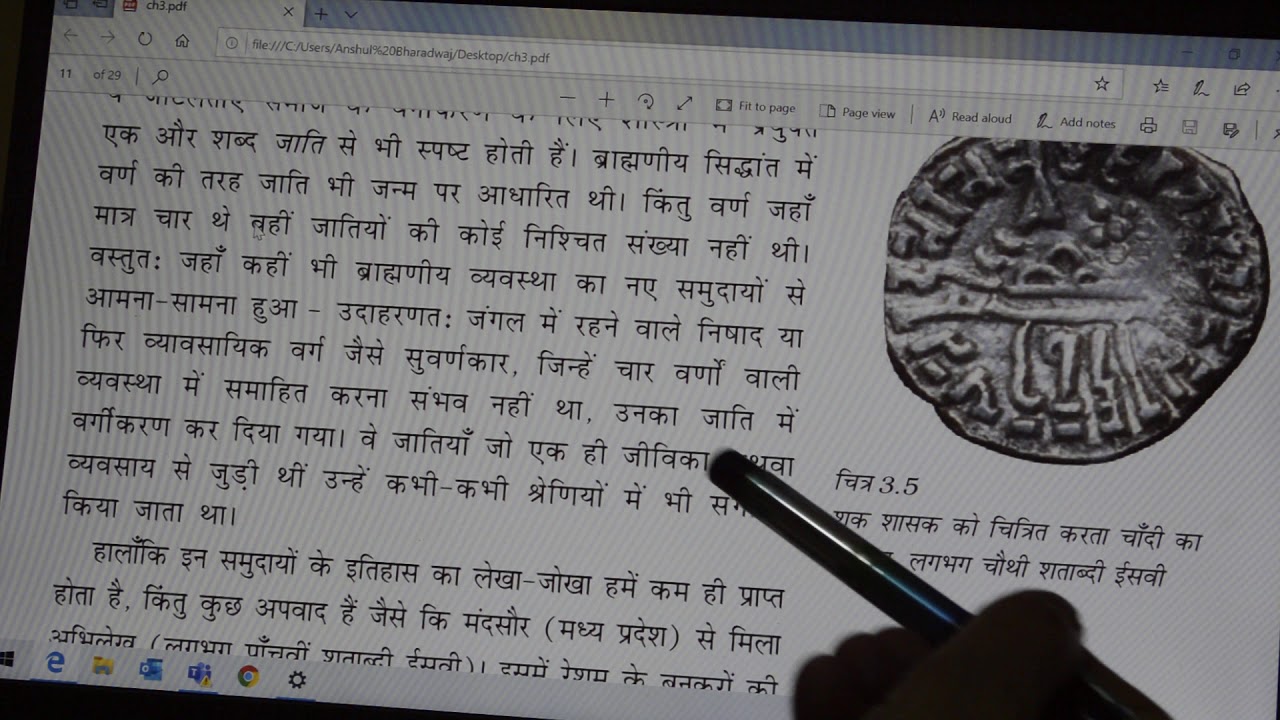 ch3.pdf
file:///C:/Users/Anshul%20Bharadwaj/Desktop/ch3.pdf
11 of 29
Fit to page
Page view
Read aloud
Add notes
एक और शब्द जाति से भी स्पष्ट होती हैं। ब्राह्मणीय सिद्धांत में
वर्ण की तरह जाति भी जन्म पर आधारित थी। किंतु वर्ण जहाँ
मात्र चार थे वहीं जातियों की कोई निश्चित संख्या नहीं थी।
वस्तुत: जहाँ कहीं भी ब्राह्मणीय व्यवस्था का नए समुदायों से
आमना-सामना हुआ - उदाहरणत: जंगल में रहने वाले निषाद या
फिर व्यावसायिक वर्ग जैसे सुवर्णकार, जिन्हें चार वर्णों वाली
व्यवस्था में समाहित करना संभव नहीं था, उनका जाति में
वर्गीकरण कर दिया गया। वे जातियाँ जो एक ही जीविका
व्यवसाय से जुड़ी थीं उन्हें कभी-कभी श्रेणियों में भी
किया जाता था।
हालाँकि इन समुदायों के इतिहास का लेखा-जोखा हमें कम ही प्राप्त
होता है, किंतु कुछ अपवाद हैं जैसे कि मंदसौर (मध्य प्रदेश) से मिला
अभिलेख (लगभग पाँचवीं शताब्दी ईसवी)। इसमें रेशम के बुनकरों की
चित्र 3.5
शक शासक को चित्रित करता चाँदी का
लगभग चौथी शताब्दी ईसवी